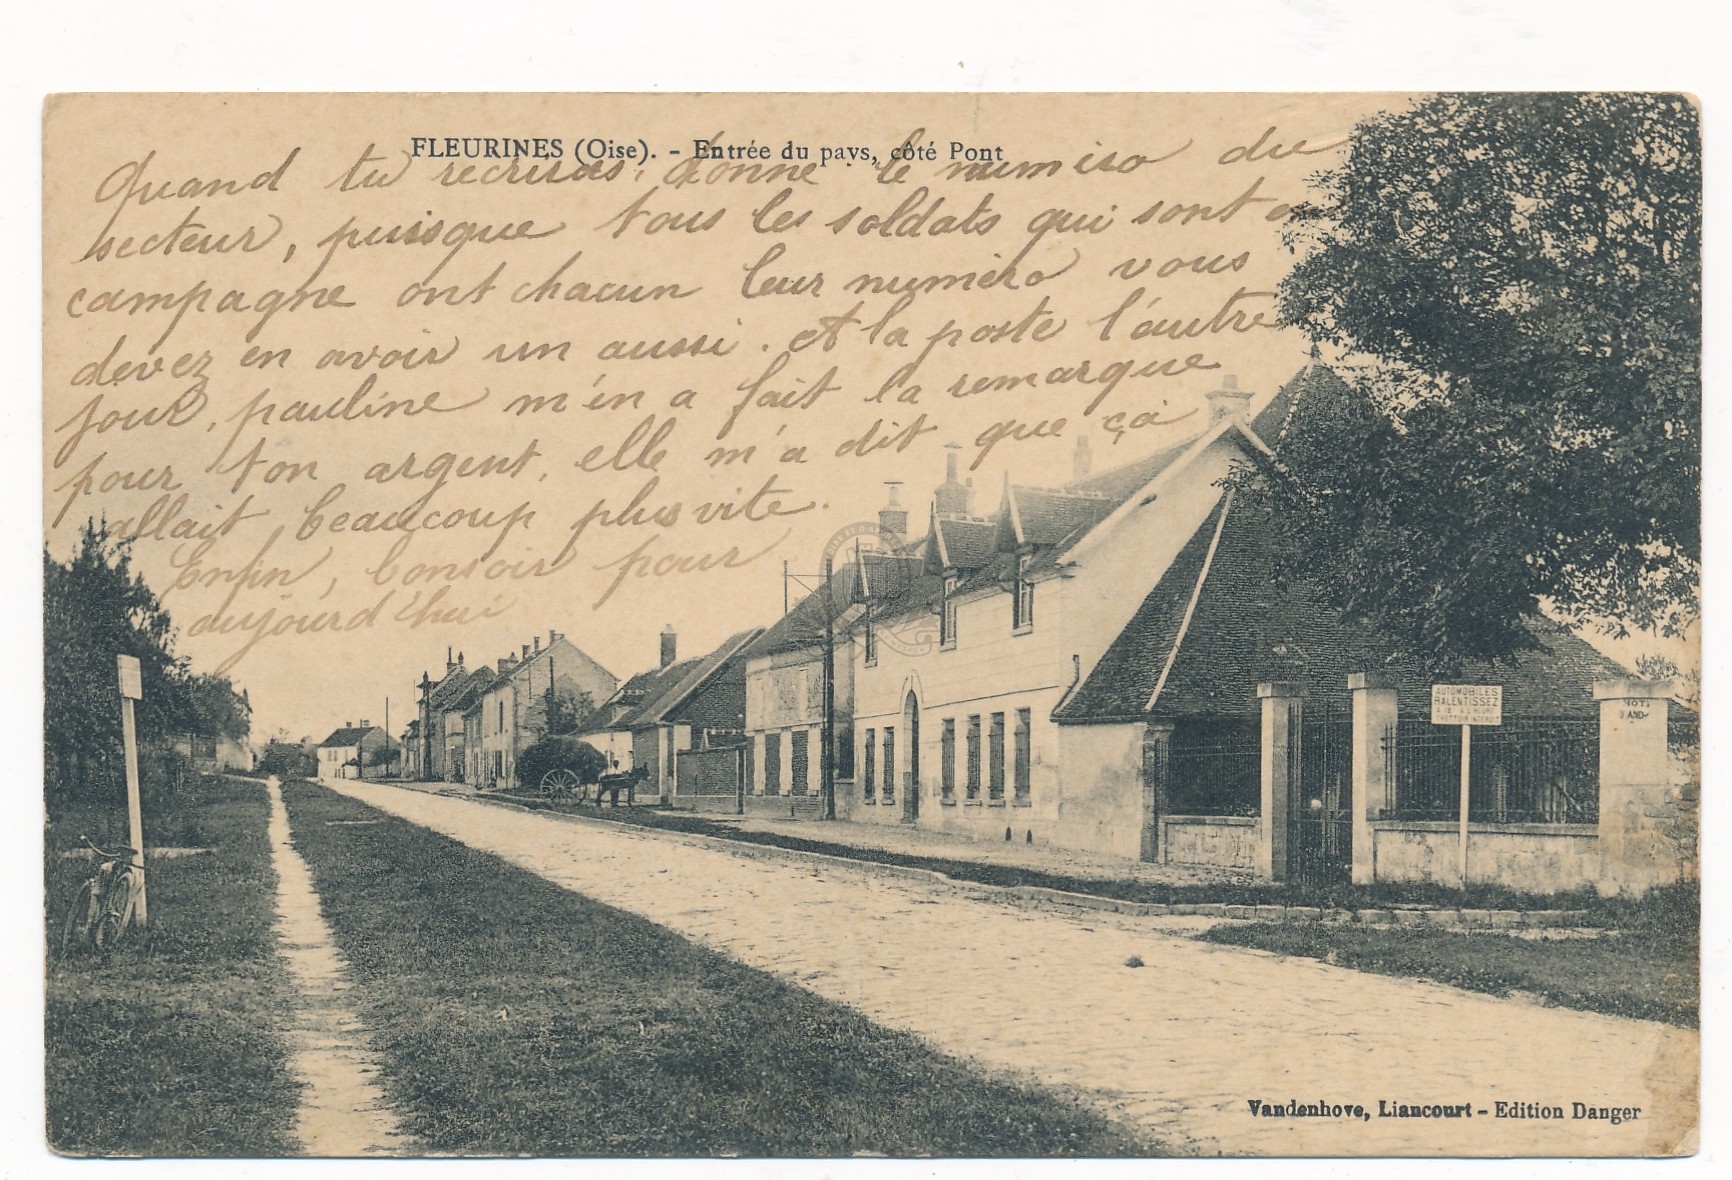 FLEURINES (Oise). - Entrée du pays, côté Pont
Quand tu recriras, donne le numiro du
secteur, puisque tous les soldats qui sont en
campagne ont chacun leur numéro vous
devez en avoir un aussi. et la poste l'autre
jour, pauline m'en a fait la remarque
pour ton argent, elle m'a dit que çà
allait beaucoup plus vite.
Enfin, bonsoir pour
aujourd'hui
AUTOMOBILES
RALENTISSEZ
Vandenhove, Liancourt - Edition Danger